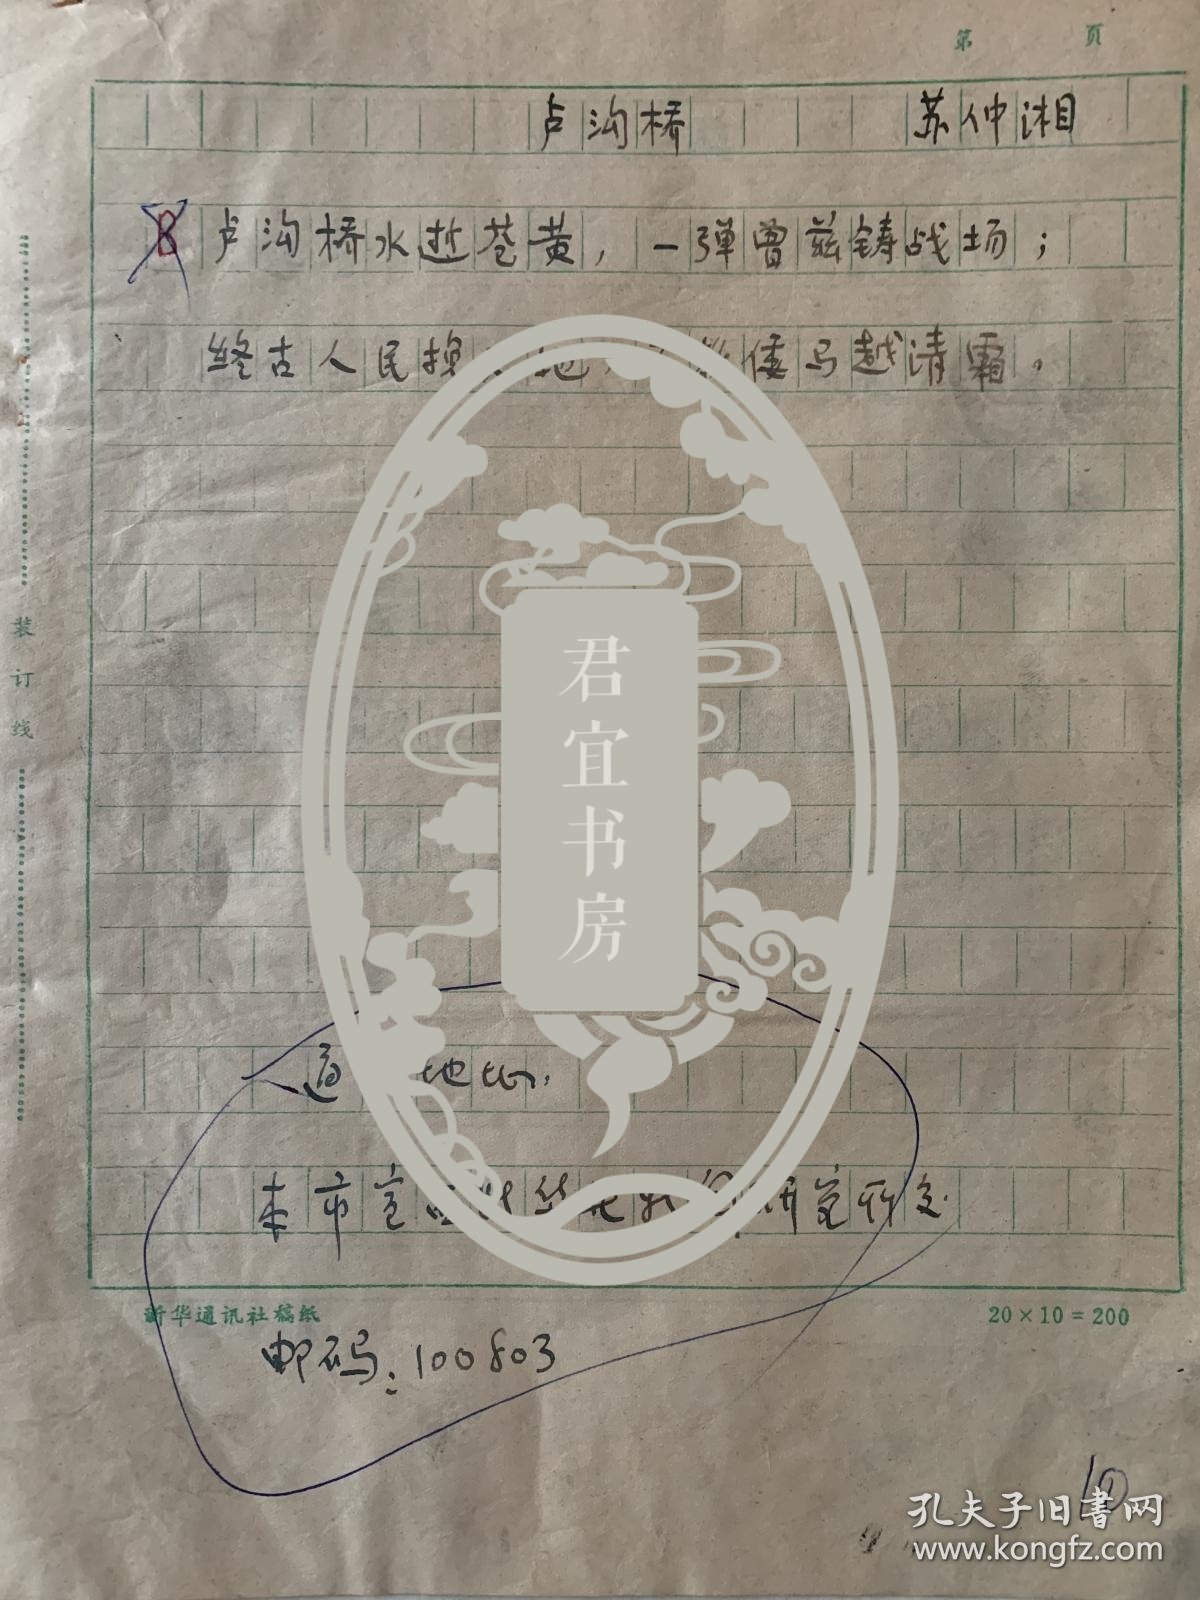 第 页
卢沟桥 苏仲湘
B 卢沟桥水逝苍黄，一弹曾兹铸战场；
终古人民 地， 倭马越清霜。
装订线
君宜书房
通 地址：
本市宣 新 研究所交
新华通讯社稿纸 20×10=200
邮码：100803
10
孔夫子旧书网
www.kongfz.com